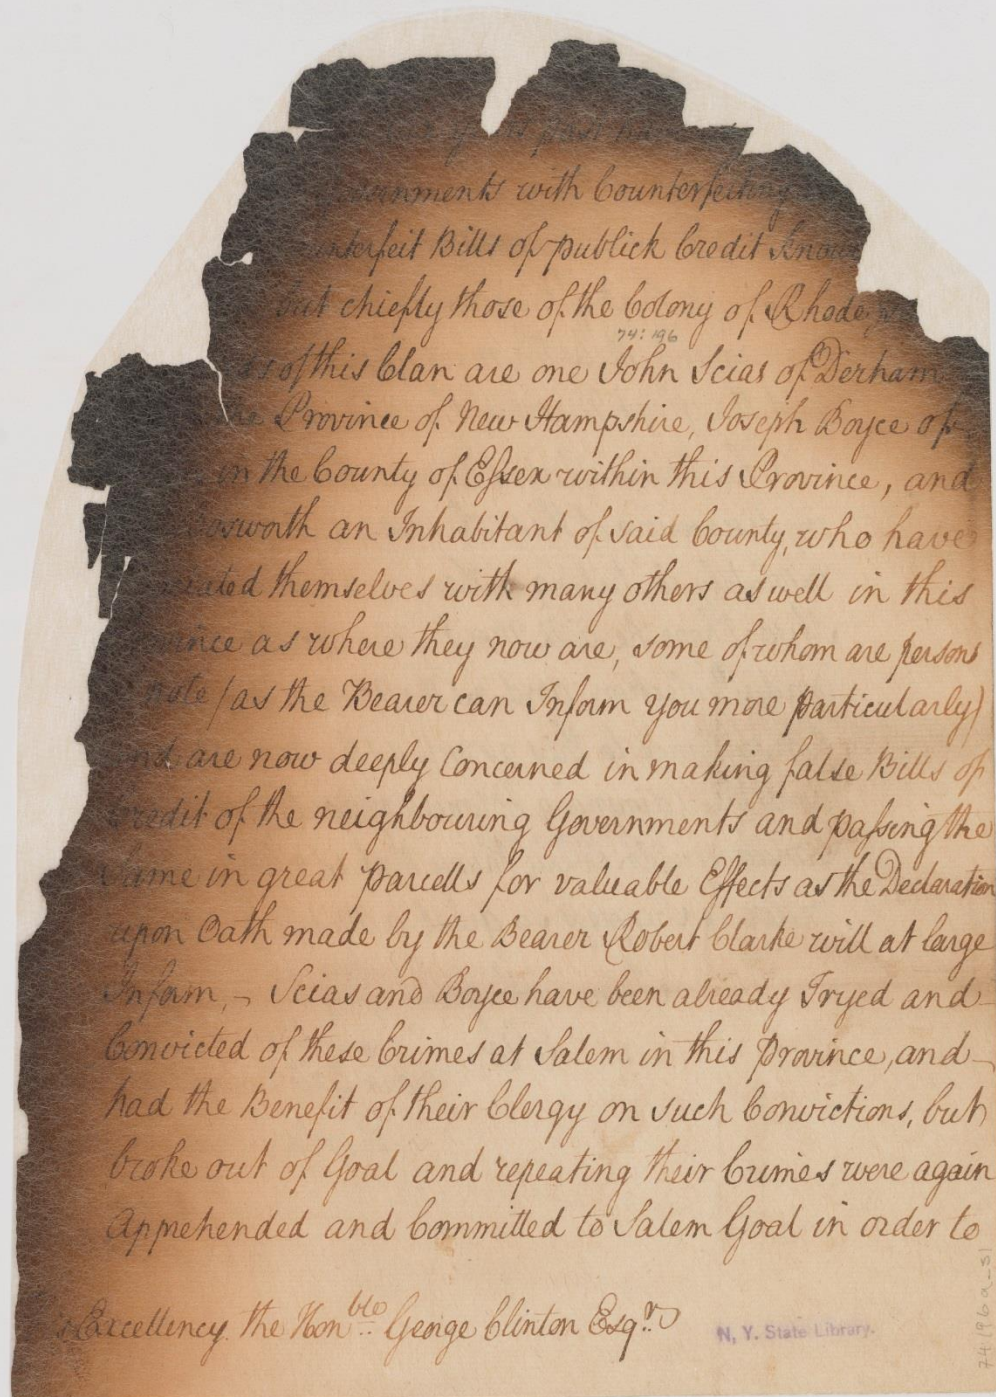 with Counterfeiting
Bills of publick Credit
but chiefly those of the Colony of Rhode
74:196
of this Clan are one John Scias of Derham
Province of New Hampshire, Joseph Boyce of
in the County of Essex within this Province, and
an Inhabitant of said County, who have
themselves with many others as well in this
as where they now are, some of whom are persons
note (as the Bearer can Inform you more particularly)
and are now deeply Concerned in making false Bills of
Credit of the neighbouring Governments and passing the
same in great parcells for valuable Effects as the Declaration
upon Oath made by the Bearer Robert Clarke will at large
Inform, - Scias and Boyce have been already Tryed and
Convicted of these Crimes at Salem in this Province, and
had the Benefit of their Clergy on such Convictions, but
broke out of Goal and repeating their Crimes were again
Apprehended and Committed to Salem Goal in order to
Excellency the Honble George Clinton Esqr
N. Y. State Library.
74196a_s1